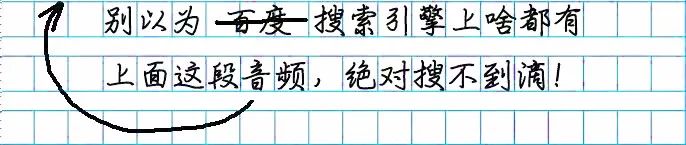 别以为 百度 搜索引擎上啥都有
上面这段音频，绝对搜不到滴！